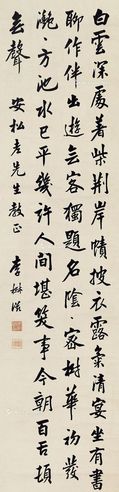 白雲深處着柴荊岸幘披衣露氣清宴坐有書
聊作伴出遊無客獨題名陰〻密樹華初發
灧〻方池水已平幾許人間堪笑事今朝百舌頓
無聲
安松老先生教正
李